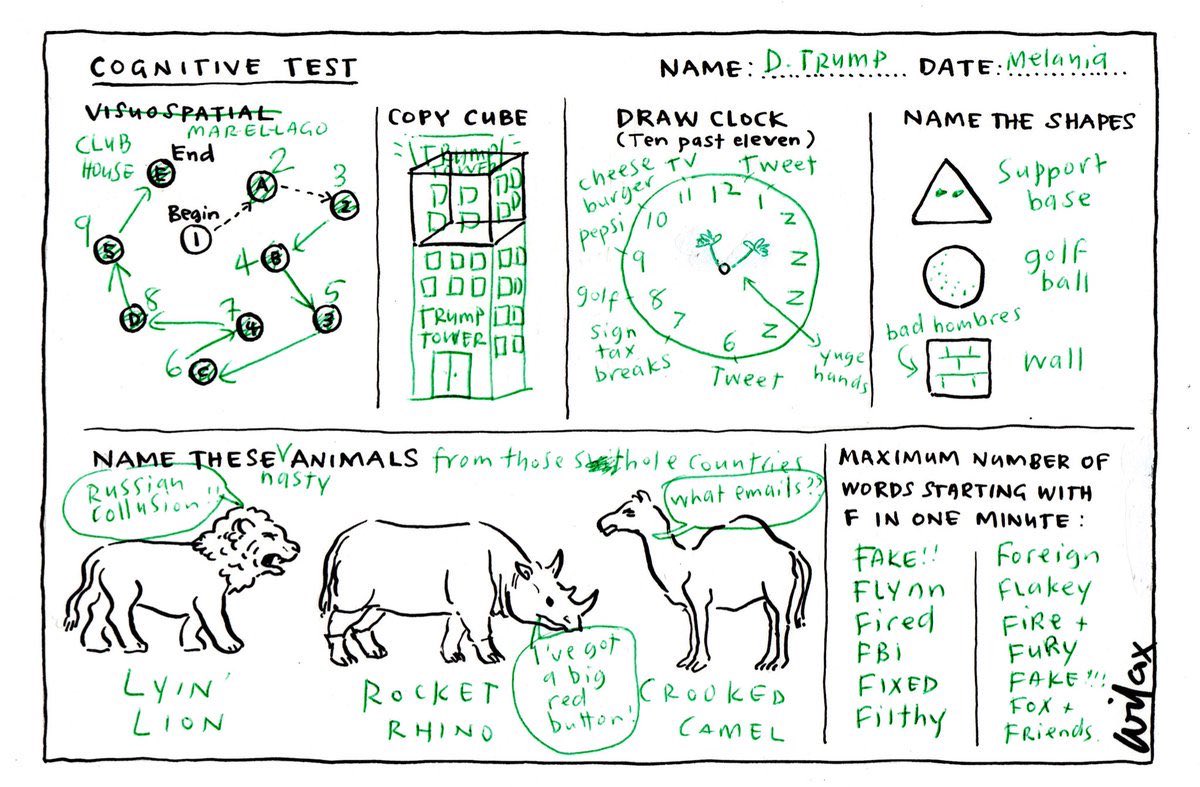 COGNITIVE TEST
NAME: D. TRUMP DATE: Melania
VISUOSPATIAL
MAREL-LAGO
CLUB
HOUSE
End
E
2
A
3
2
Begin
1
9
5
4
B
5
3
8
D
7
4
6
C
COPY CUBE
TRUMP
TOWER
TRUMP
TOWER
DRAW CLOCK
(Ten past eleven)
cheese
burger
TV
Tweet
pepsi
golf
sign
tax
breaks
Tweet
yuge
hands
11
12
1
10
9
8
7
6
Z
Z
Z
Z
NAME THE SHAPES
Support
base
golf
ball
bad hombres
wall
NAME THESE nasty ANIMALS from those s thole countries
Russian
collusion!!
what emails??
I've got
a big
red
button!
LYIN'
LION
ROCKET
RHINO
CROOKED
CAMEL
MAXIMUM NUMBER OF
WORDS STARTING WITH
F IN ONE MINUTE:
FAKE!!
FLYnn
Fired
FBi
FIXED
Filthy
Foreign
FLakey
FiRe +
FuRy
FAKE!!!
FOX +
FRiends.
Wilcox